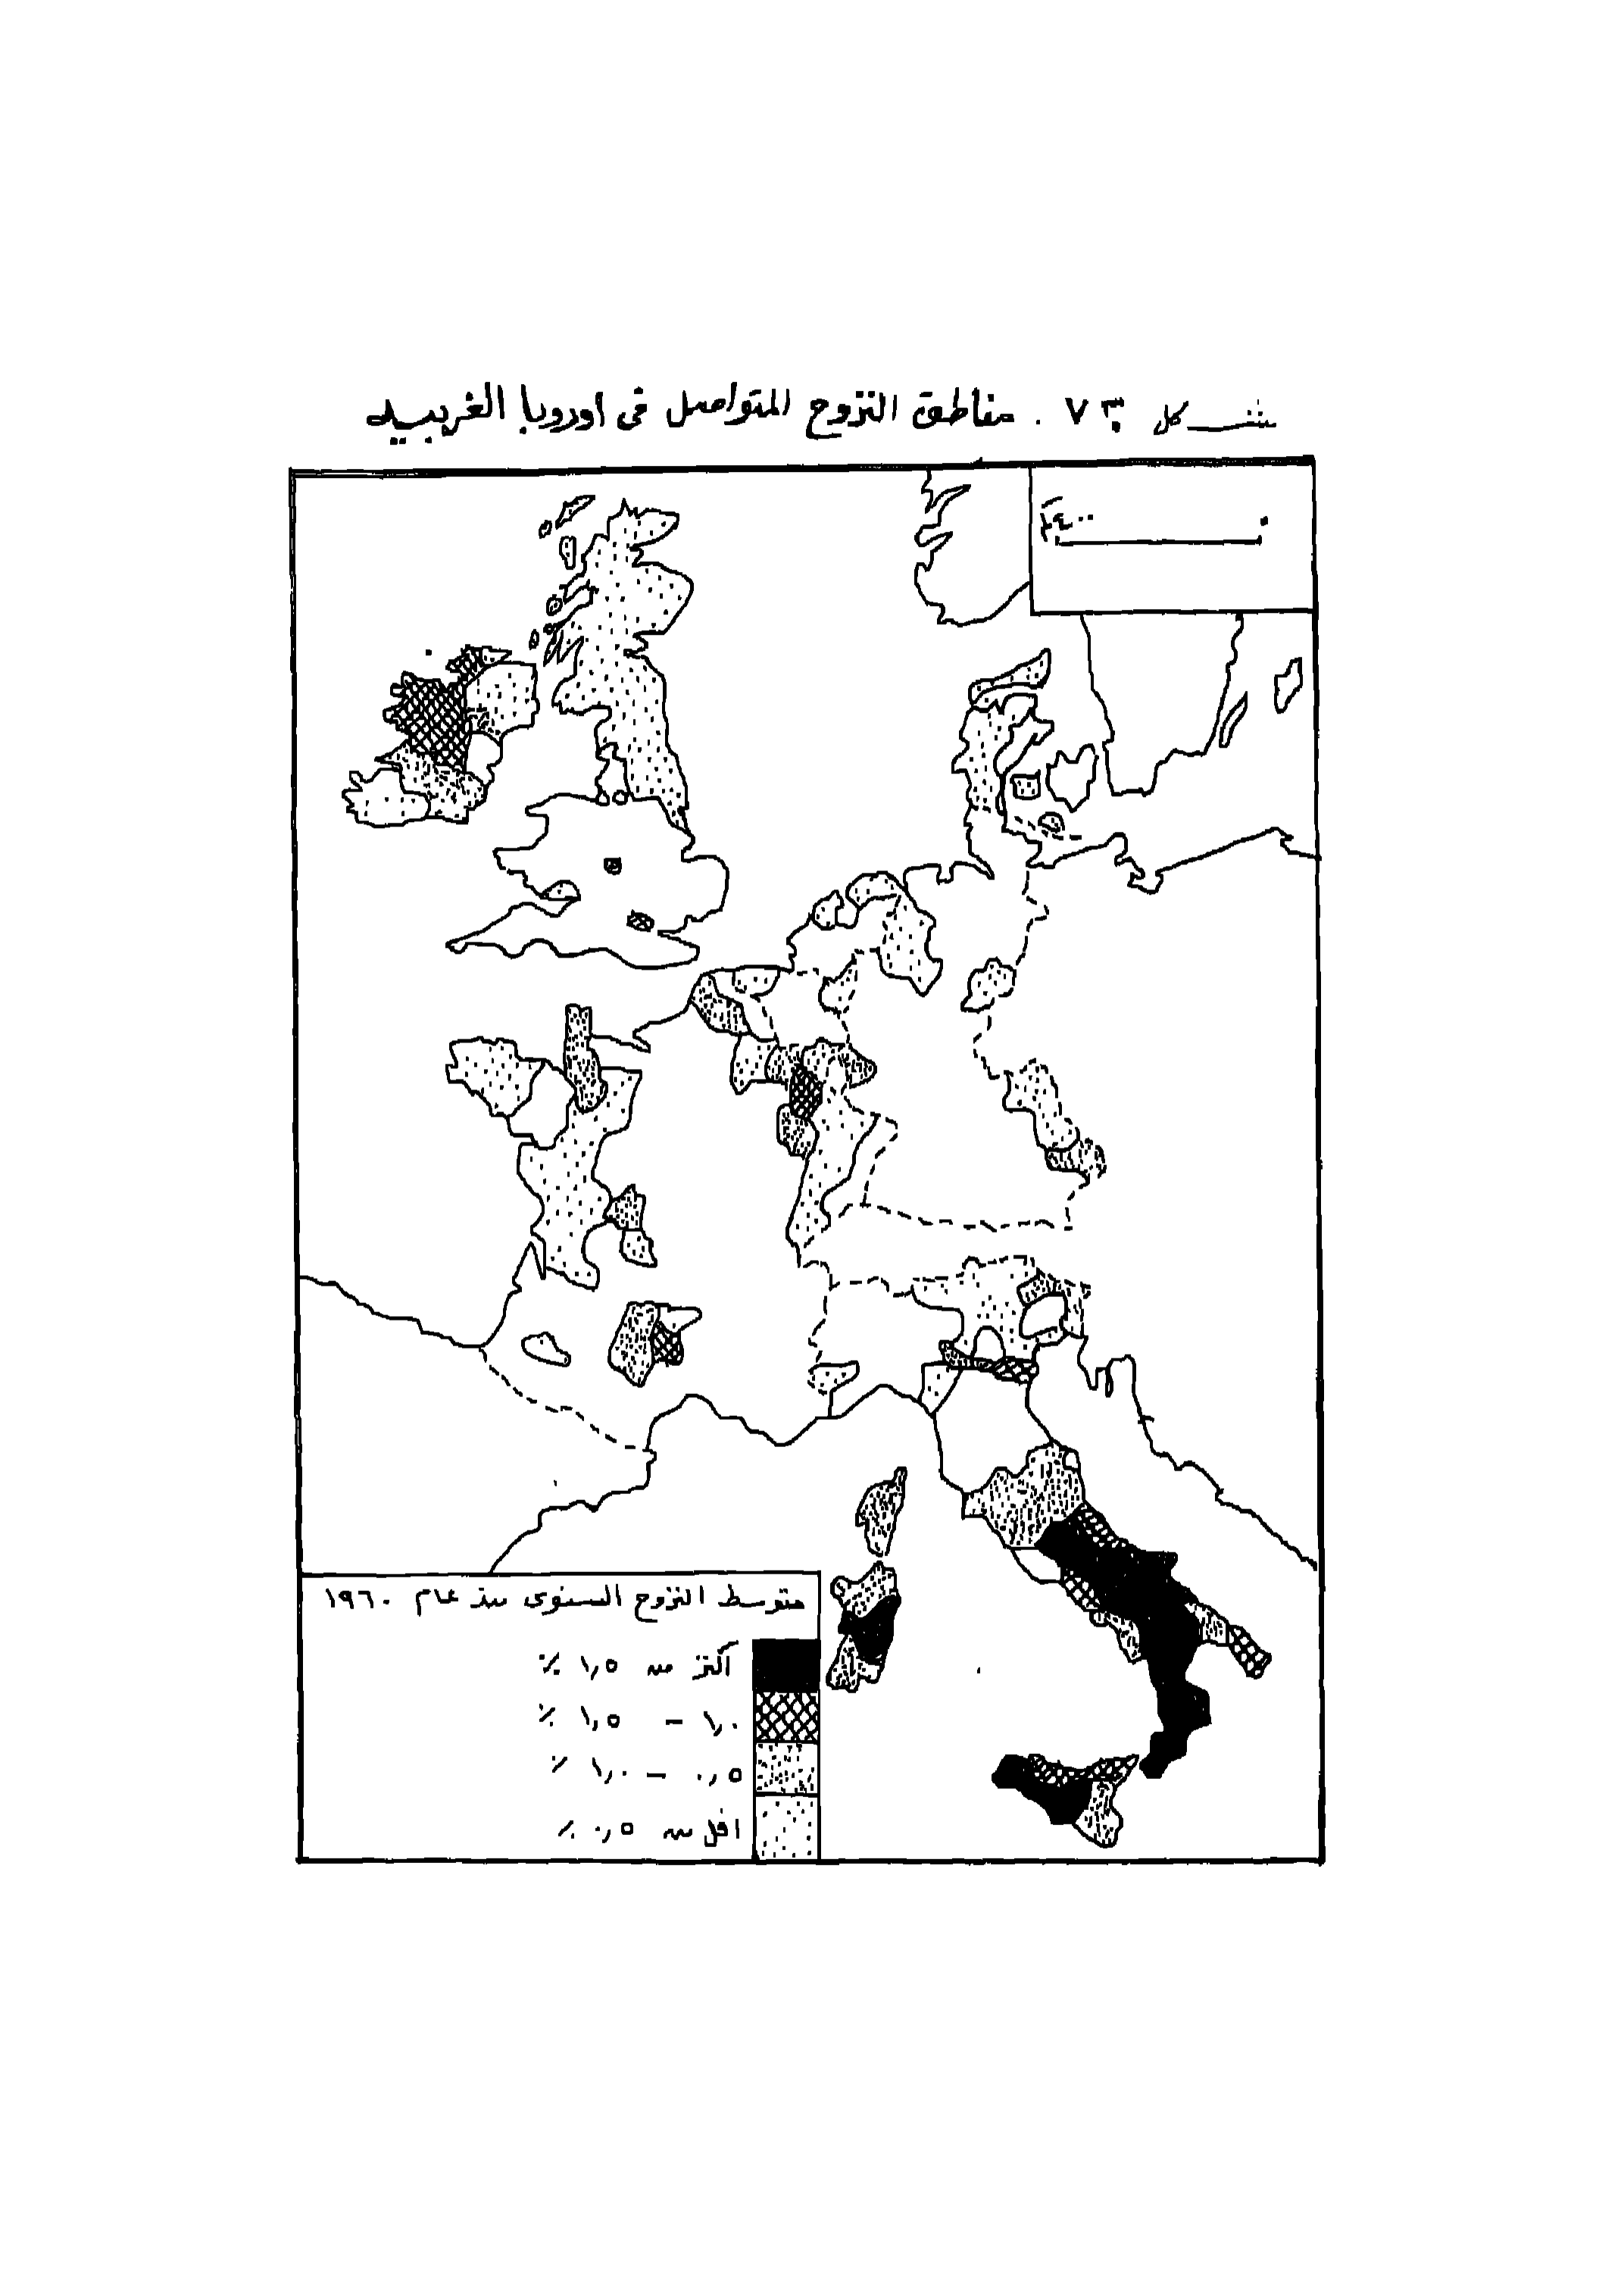 شكل ٧٣ . مناطق النزوح المتواصل فى اوروبا الغربيه
٤٠٠ كم ٠
متوسط النزوح السنوى منذ عام ١٩٦٠
اكثر من ١,٥ ٪
١,٠ - ١,٥ ٪
٠,٥ - ١,٠ ٪
اقل من ٠,٥ ٪